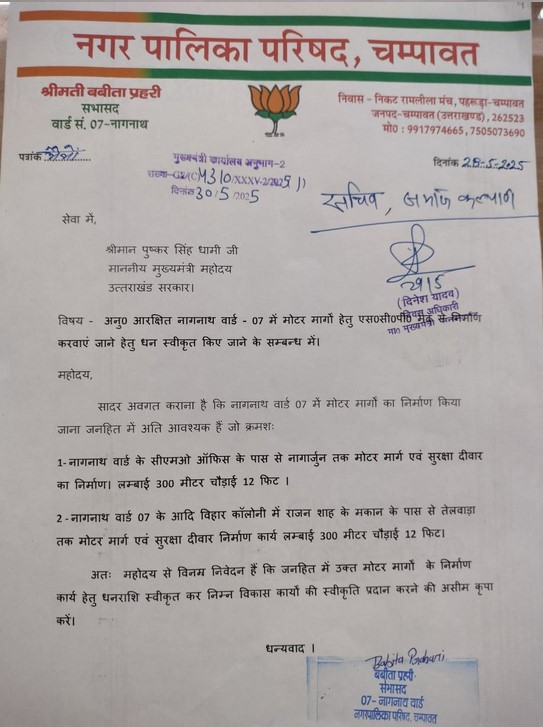 नगर पालिका परिषद, चम्पावत
श्रीमती बबीता प्रहरी
सभासद
वार्ड सं. 07-नागनाथ
निवास - निकट रामलीला मंच, पहरूड़ा-चम्पावत
जनपद-चम्पावत (उत्तराखण्ड), 262523
मो0 : 9917974665, 7505073690
पत्रांक
दिनांक 28-5-2025
मुख्यमंत्री कार्यालय अनुभाग-2
संख्या-GI/(C)4310/XXXV-2/2025
दिनांक 30/5/2025
सचिव, समाज कल्याण
सेवा में,
श्रीमान पुष्कर सिंह धामी जी
माननीय मुख्यमंत्री महोदय
उत्तराखंड सरकार।
29/5
(दिनेश यादव)
विषय - अनु0 आरक्षित नागनाथ वार्ड - 07 में मोटर मार्गो हेतु एस0सी0पी0 मद से निर्माण
करवाएं जाने हेतु धन स्वीकृत किए जाने के सम्बन्ध में।
महोदय,
सादर अवगत कराना है कि नागनाथ वार्ड 07 में मोटर मार्गो का निर्माण किया
जाना जनहित में अति आवश्यक हैं जो क्रमशः
1-नागनाथ वार्ड के सीएमओ ऑफिस के पास से नागार्जुन तक मोटर मार्ग एवं सुरक्षा दीवार
का निर्माण। लम्बाई 300 मीटर चौड़ाई 12 फिट ।
2 -नागनाथ वार्ड 07 के आदि विहार कॉलोनी में राजन शाह के मकान के पास से तेलवाड़ा
तक मोटर मार्ग एवं सुरक्षा दीवार निर्माण कार्य लम्बाई 300 मीटर चौड़ाई 12 फिट।
अतः महोदय से विनम्र निवेदन हैं कि जनहित में उक्त मोटर मार्गो के निर्माण
कार्य हेतु धनराशि स्वीकृत कर निम्न विकास कार्यो की स्वीकृति प्रदान करने की असीम कृपा
करें।
धन्यवाद ।
Babita Prahari
बबीता प्रहरी
सभासद
07- नागनाथ वार्ड
नगरपालिका परिषद, चम्पावत